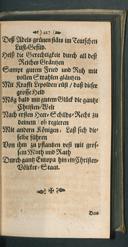 )327(
Deß Adels grünen štäts im Teutschen
Lust-Gefild.
Helff die Gerechtigkeit durch all deß
Reiches Gräntzen
Sampt gutem Fried und Ruh mit
vollen Strahlen gläntzen
Mit Krafft Leopolden růst / daß dieser
grosse Held
Mög bald mit gutem Glück die gantze
Christen-Welt
Nach ersten Herr Schilds-Recht zu
deinem / ob regieren
Mit andern Königen. Laß sich die-
selbe führen
Von ihm zu pflantzen dez mit gros-
sem Muth und Rath
Durch gantz Europa hin ein Christen-
Völcker-Staat.
Das